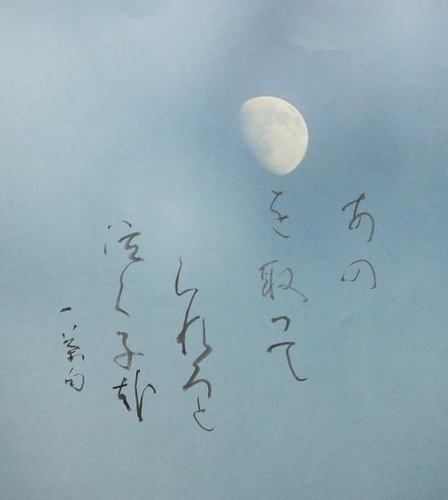 あの
を取って
くれろと
泣く子哉
一茶句